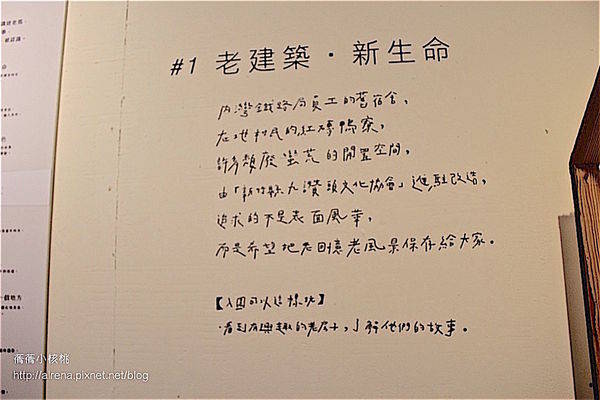 #1 老建築·新生命
內灣鐵路局員工的舊宿舍,
在地村民的紅磚鴨寮,
許多頹廢蠻荒的閒置空間,
由「新竹縣九讚頭文化協會」進駐改造,
追求的不是表面風華,
而是希望把老回憶老風景保存給大家。
【人囝可以這樣玩】
·看到有興趣的老房子,了解他們的故事。
蓓蓓小核桃
http://airena.pixnet.net/blog
一個地方